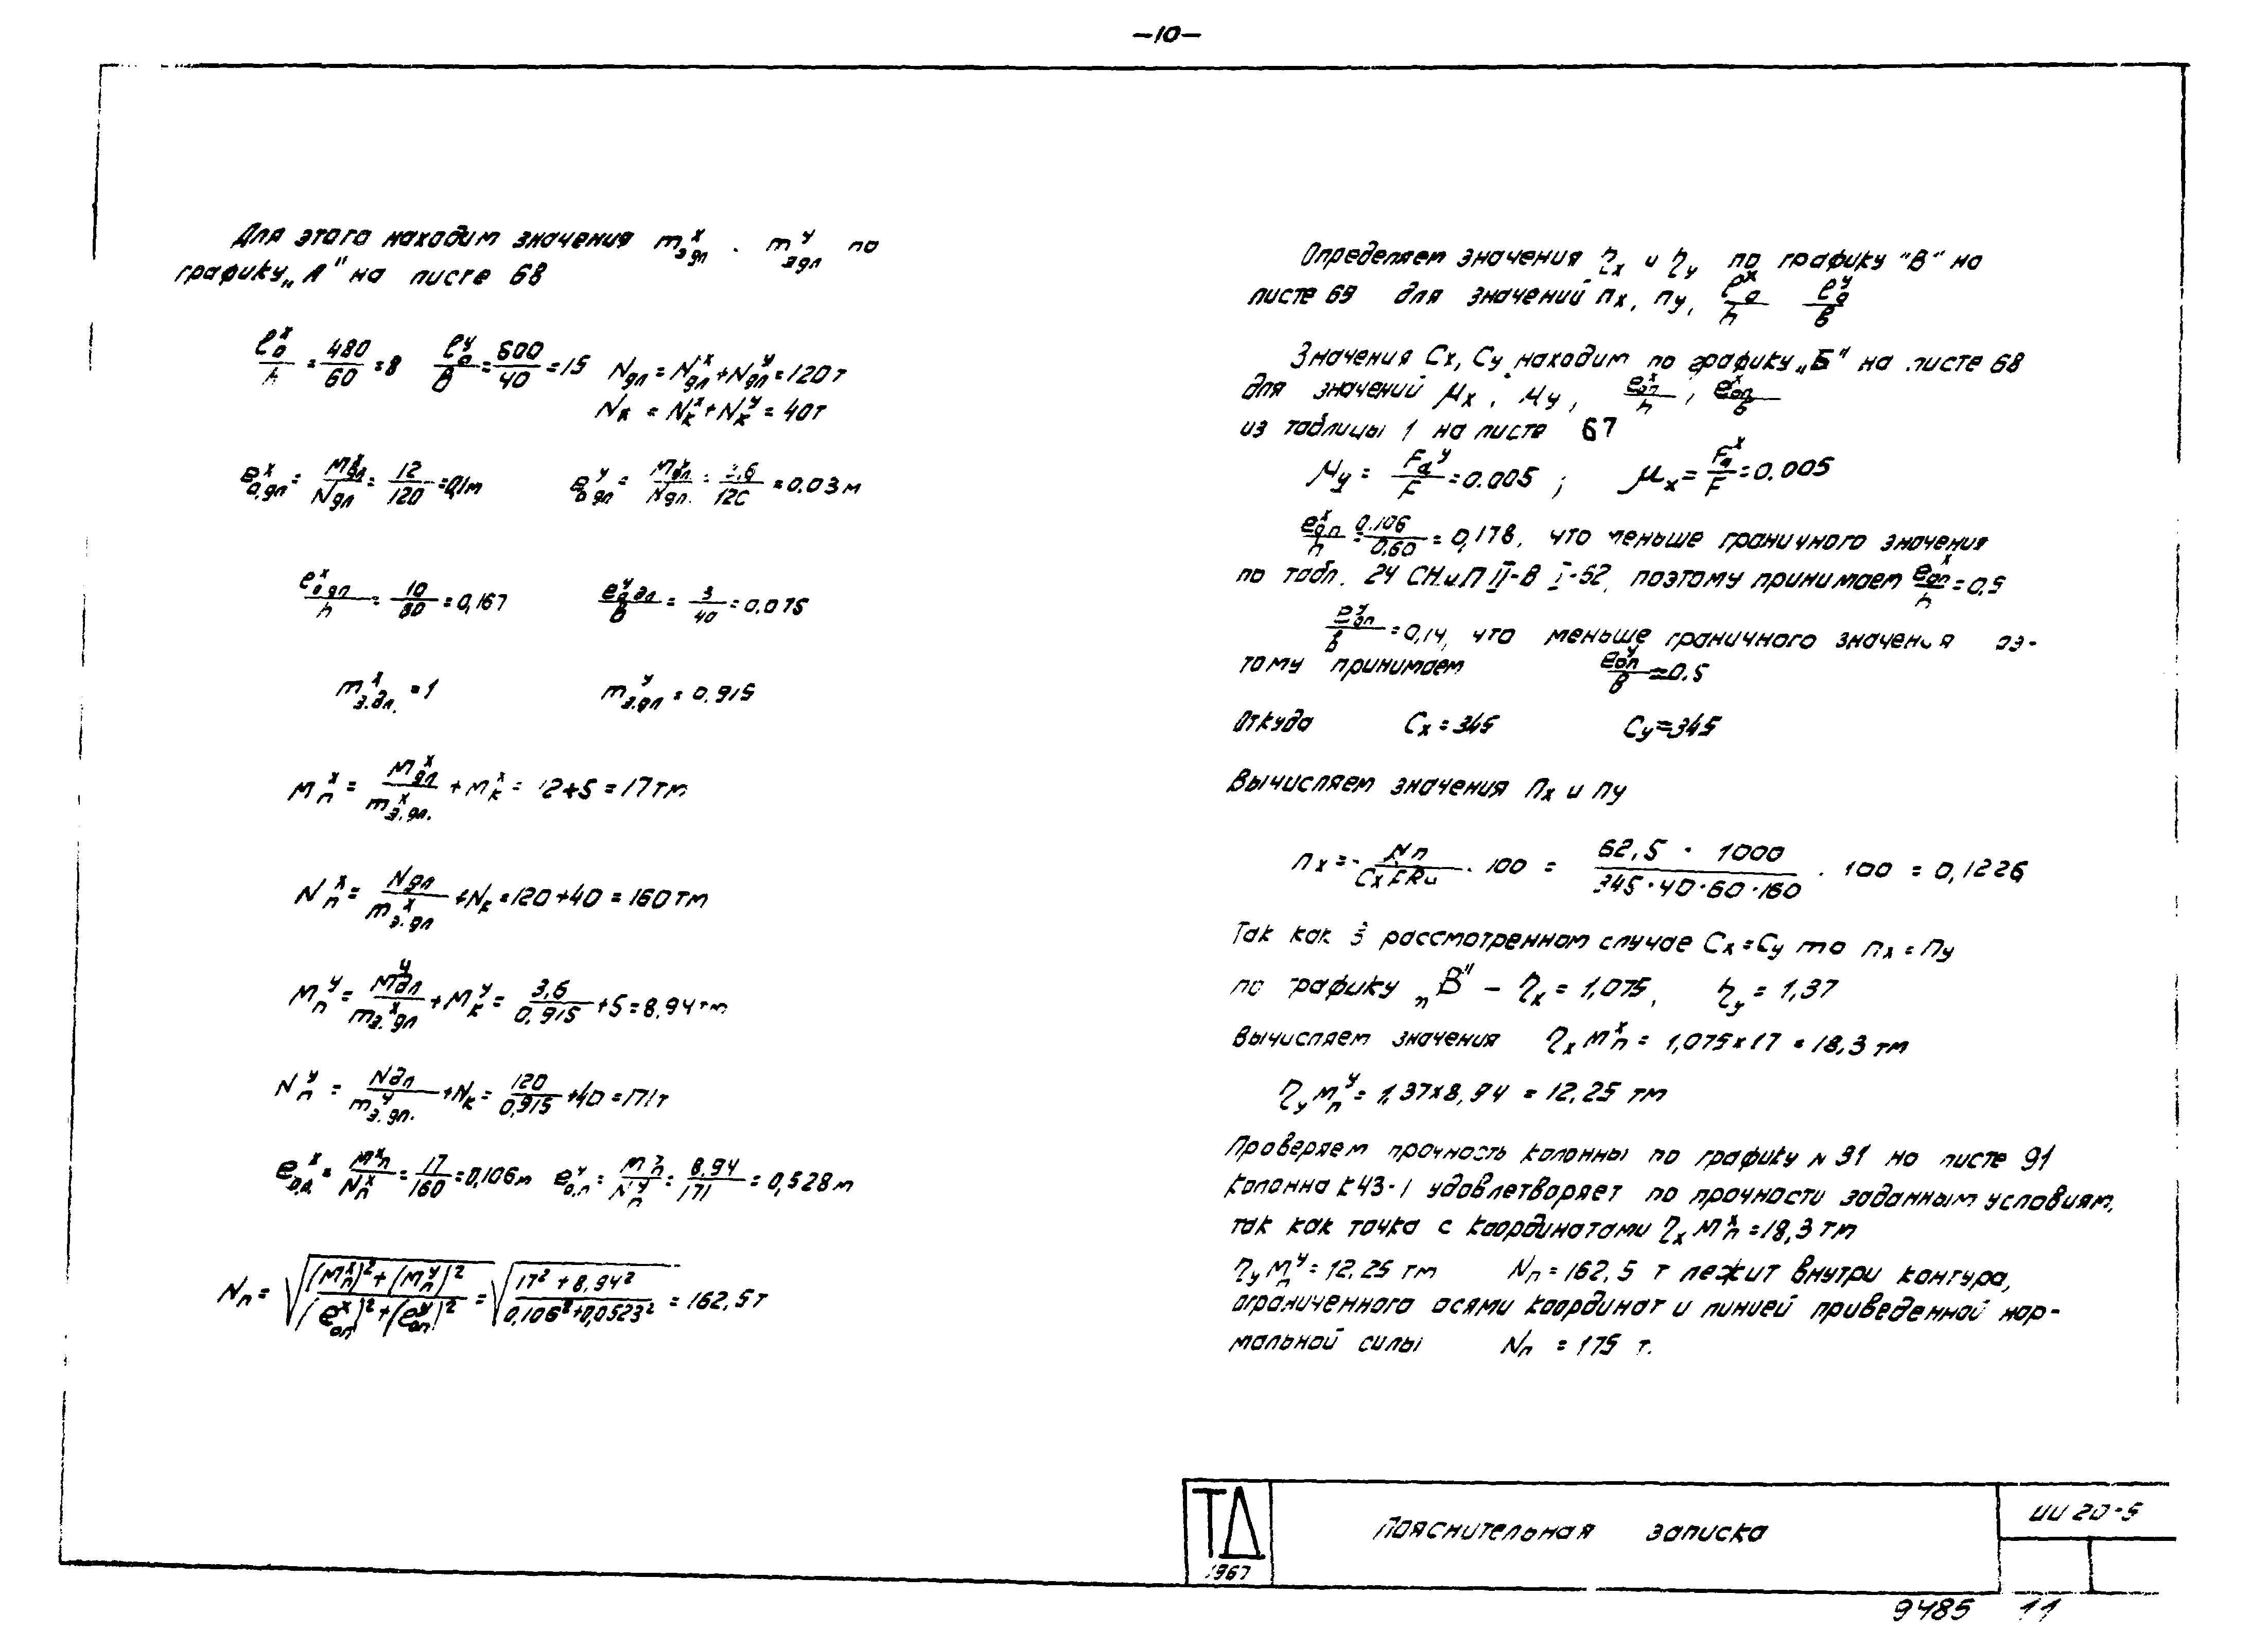 —10—
Для этого находим значения m_{э.дл}^x . m_{э.дл}^y по
графику „А" на листе 68
l_0^x/h = 480/60 = 8   l_0^y/B = 600/40 = 15   N_{дл} = N_{дл}^x + N_{дл}^y = 120 т
N_к = N_к^x + N_к^y = 40т
e_{0,дл}^x = M_{дл}^x/N_{дл} = 12/120 = 0,1м   e_{0 дл}^y = M_{дл}^y/N_{дл.} = 3,6/120 = 0.03 м
e_{0 дл}^x/h = 10/60 = 0,167   e_{0 дл}^y/B = 3/40 = 0.075
m_{э.дл.}^x = 1   m_{э.дл}^y = 0.915
M_п^x = M_{дл}^x/m_{э.дл.}^x + M_к^x = 12+5 = 17 тм
N_п^x = N_{дл}/m_{э.дл}^x + N_к = 120+40 = 160 тм
M_п^y = M_{дл}^y/m_{э.дл}^x + M_к^y = 3,6/0,915 + 5 = 8,94 тм
N_п^y = N_{дл}/m_{э.дл.}^y + N_к = 120/0,915 + 40 = 171т
e_{0.п}^x = M_п^x/N_п^x = 17/160 = 0,106м   e_{0.п}^y = M_п^y/N_п^y = 8,94/171 = 0,528 м
N_п = √((M_п^x)²+(M_п^y)²/(e_{0п}^x)²+(e_{0п}^y)²) = √(17²+8,94²/0,106²+0,0523²) = 162,5т
Определяем значения η_x и η_y по графику "В" на
листе 69 для значений п_x, п_y, l_0^x/h   l_0^y/в
Значения С_x, С_y находим по графику „Б" на листе 68
для значений μ_x, μ_y, e_{0п}^x/h ; e_{0п}^x/в
из таблицы 1 на листе 67
μ_y = F_a^y/F = 0.005 ;   μ_x = F_a^x/F = 0.005
e_{0п}^x/h = 0.106/0.60 = 0,178, что меньше граничного значения
по табл. 24 СНиП II-В I-62, поэтому принимаем e_{0п}^x/h = 0,5
e_{0п}^y/в = 0,14, что меньше граничного значения оэ-
тому принимаем e_{0п}^y/в = 0.5
Откуда   С_x = 345   С_y = 345
Вычисляем значения п_x и п_y
п_x = N_п/С_x F R_и · 100 = 62,5 · 1000/345·40·60·160 · 100 = 0,1226
Так как в рассмотренном случае С_x = С_y то п_x = п_y
по графику „В" – η_к = 1,075, η_y = 1,37
Вычисляем значения η_x M_п^x = 1,075×17 = 18,3 тм
η_y M_п^y = 1,37×8,94 = 12.25 тм
Проверяем прочность колонны по графику N 31 на листе 91
колонна К43-1 удовлетворяет по прочности заданным условиям,
так как точка с координатами η_x M_п^x = 18,3 тм
η_y M_п^y = 12.25 тм   N_п = 162,5 т лежит внутри контура,
ограниченного осями координат и линией приведенной нор-
мальной силы   N_п = 175 т.
ТД
1967
Пояснительная записка
ИИ 20-5
9485   11